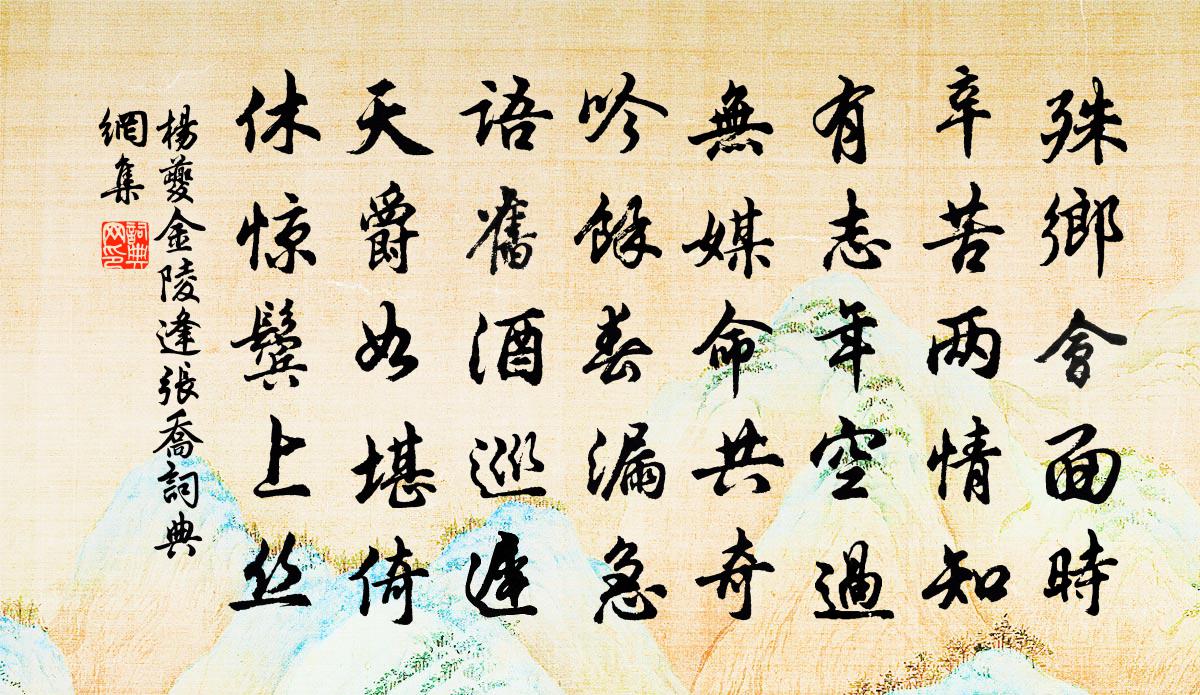 殊鄉會面時
辛苦兩情知
有志年空過
無媒命共奇
吟餘春漏急
語舊酒巡遲
天爵如堪倚
休惊鬢上丝
楊夔金陵逢張喬詞典
網集
詞典
网印